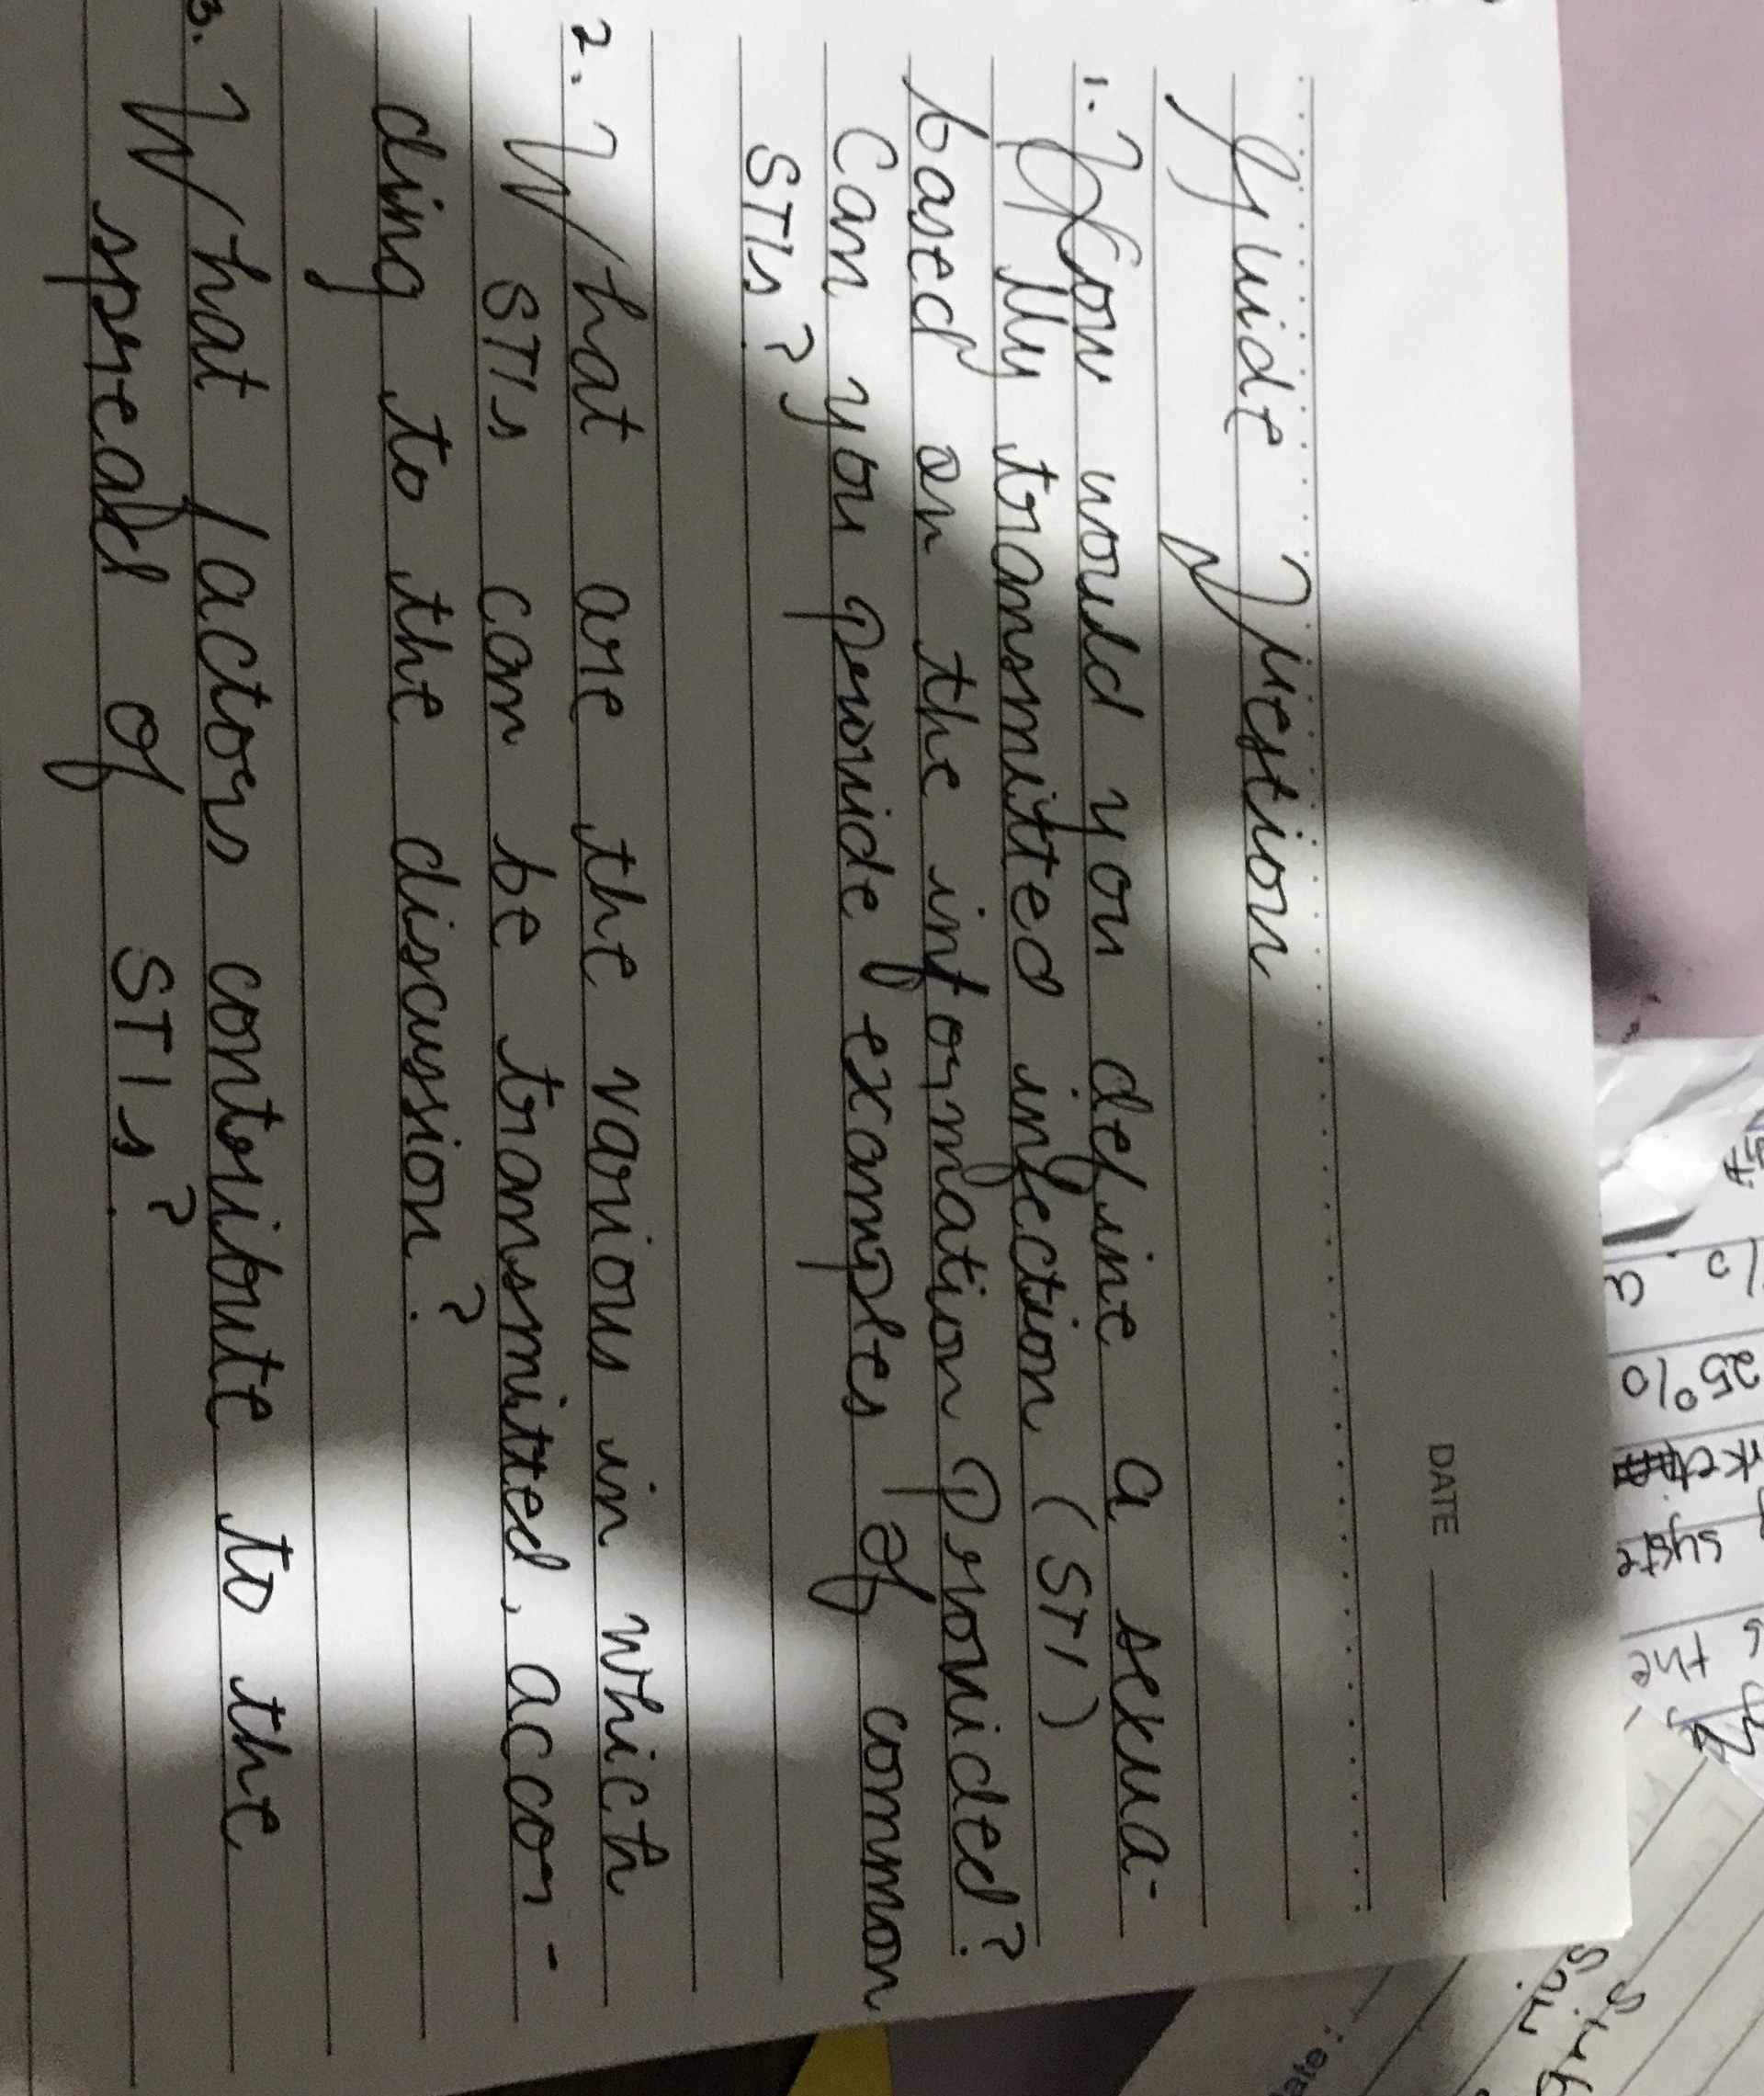 DATE
Guide Question
1. How would you define a sexua-
lly transmitted infection (STI)
based on the information provided?
Can you provide examples of common
STIs?
2. What are the various in which
STIs can be transmitted, accor-
ding to the discussion?
3. What factors contribute to the
spread of STIs?
25%
syste
s the